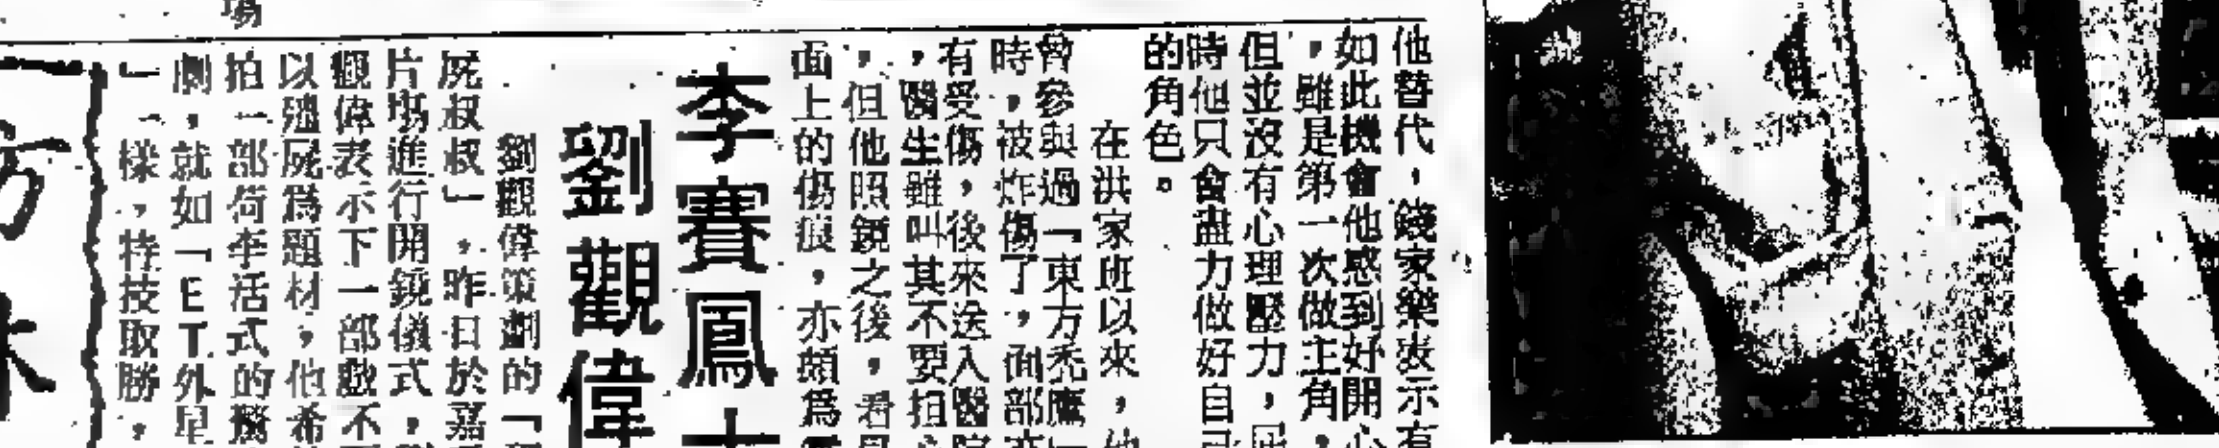 他替代，錢家樂表示有
如此機會他感到好開心
，雖是第一次做主角，
但並沒有心理壓力，屆
時他只會盡力做好自己
的角色。
在洪家班以來，他
曾參與過「東方禿鷹」
時，被炸傷了，面部亦
有受傷，後來送入醫院
，醫生雖叫其不要担心
，但他照鏡之後，看見
面上的傷痕，亦頗爲
李賽鳳
劉觀偉
劉觀偉策劃的「
屍叔叔」，昨日於嘉
片場進行開鏡儀式，
觀偉表示下一部戲不
以殭屍爲題材，他希
拍一部荷李活式的驚
劇，就如「ET外星
」一樣，特技取勝，
場